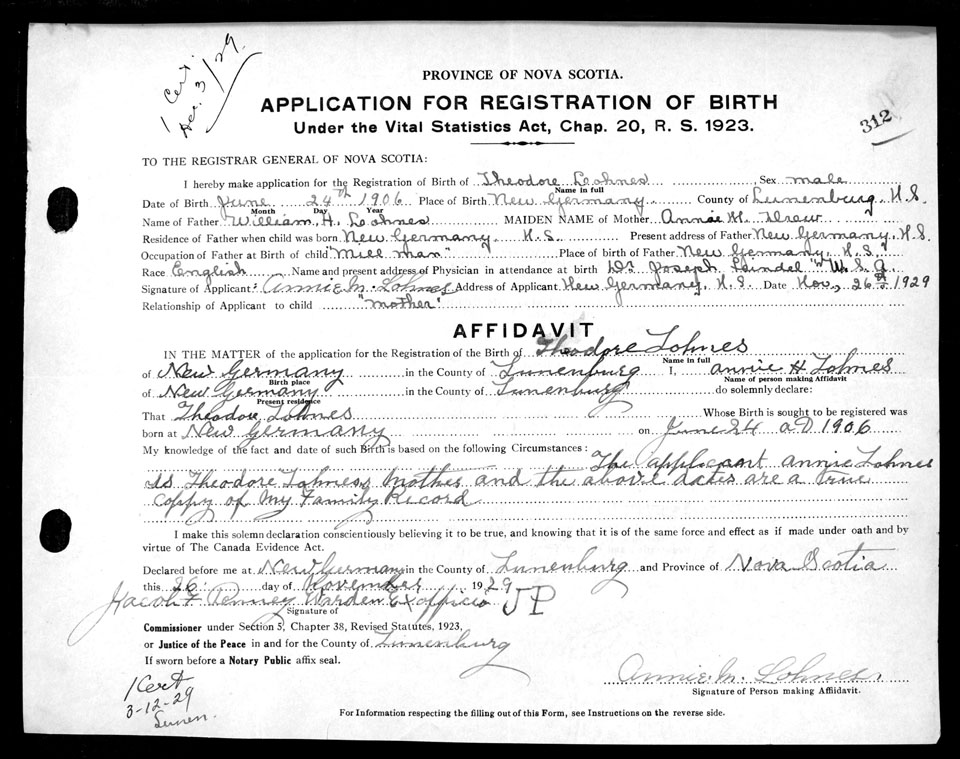 1 Cert.
Dec. 3/29.
PROVINCE OF NOVA SCOTIA.
APPLICATION FOR REGISTRATION OF BIRTH
Under the Vital Statistics Act, Chap. 20, R. S. 1923.
312
TO THE REGISTRAR GENERAL OF NOVA SCOTIA:
I hereby make application for the Registration of Birth of Theodore Lohnes Sex male
Name in full
Date of Birth June 24th 1906 Place of Birth New Germany County of Lunenburg, N.S.
Month Day Year
Name of Father William H. Lohnes MAIDEN NAME of Mother Annie M. Drew
Residence of Father when child was born New Germany N.S. Present address of Father New Germany, N.S.
Occupation of Father at Birth of child "Mill man" Place of birth of Father New Germany, N.S."
Race English Name and present address of Physician in attendance at birth Dr. Joseph
Signature of Applicant: Annie M. Lohnes Address of Applicant New Germany, N.S. Date Nov. 26th 1929
Relationship of Applicant to child "mother"
AFFIDAVIT
IN THE MATTER of the application for the Registration of the Birth of Theodore Lohnes
Name in full
of New Germany in the County of Lunenburg I, annie H Lohnes
Birth place Name of person making Affidavit
of New Germany in the County of Lunenburg do solemnly declare:
Present residence
That Theodore Lohnes Whose Birth is sought to be registered was
born at New Germany on June 24 aD 1906
My knowledge of the fact and date of such Birth is based on the following Circumstances: The applicant annie Lohnes
is Theodore Lohness mother and the above dates are a true
copy of My Family Record
I make this solemn declaration conscientiously believing it to be true, and knowing that it is of the same force and effect as if made under oath and by
virtue of The Canada Evidence Act.
Declared before me at New Germany in the County of Lunenburg and Province of Nova Scotia
this 26 day of November 1929
Jacob F Penney Warden Ex officio JP
Signature of
Commissioner under Section 5, Chapter 38, Revised Statutes, 1923,
or Justice of the Peace in and for the County of Lunenburg
If sworn before a Notary Public affix seal.
Annie M. Lohnes.
Signature of Person making Affidavit.
1 Cert
3-12-29
Lunen.
For Information respecting the filling out of this Form, see Instructions on the reverse side.